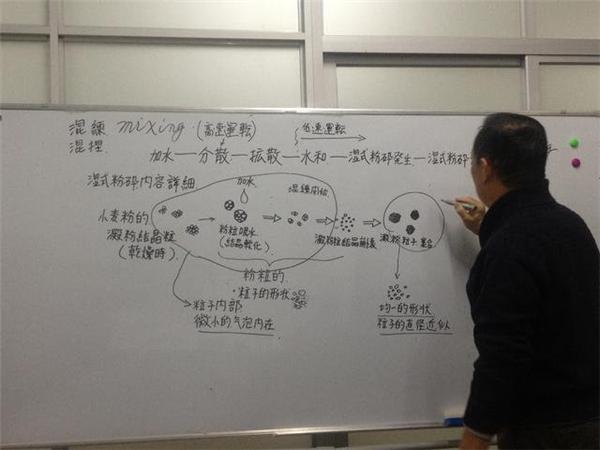 混練 mixing (高速運転) 低速運転
混捏
加水—分散—拡散—水和—湿式粉砕発生—湿式粉砕
湿式粉砕内容詳細
加水
混練開始
小麦粉的
澱粉結晶粒
(乾燥時)
粉粒吸水
(結晶軟化)
澱粉粒結晶崩壊
澱粉粒子集合
粉粒的
・粒子的形状
粒子内部
微小的气泡内在
均一的形状
粒子的直径近似